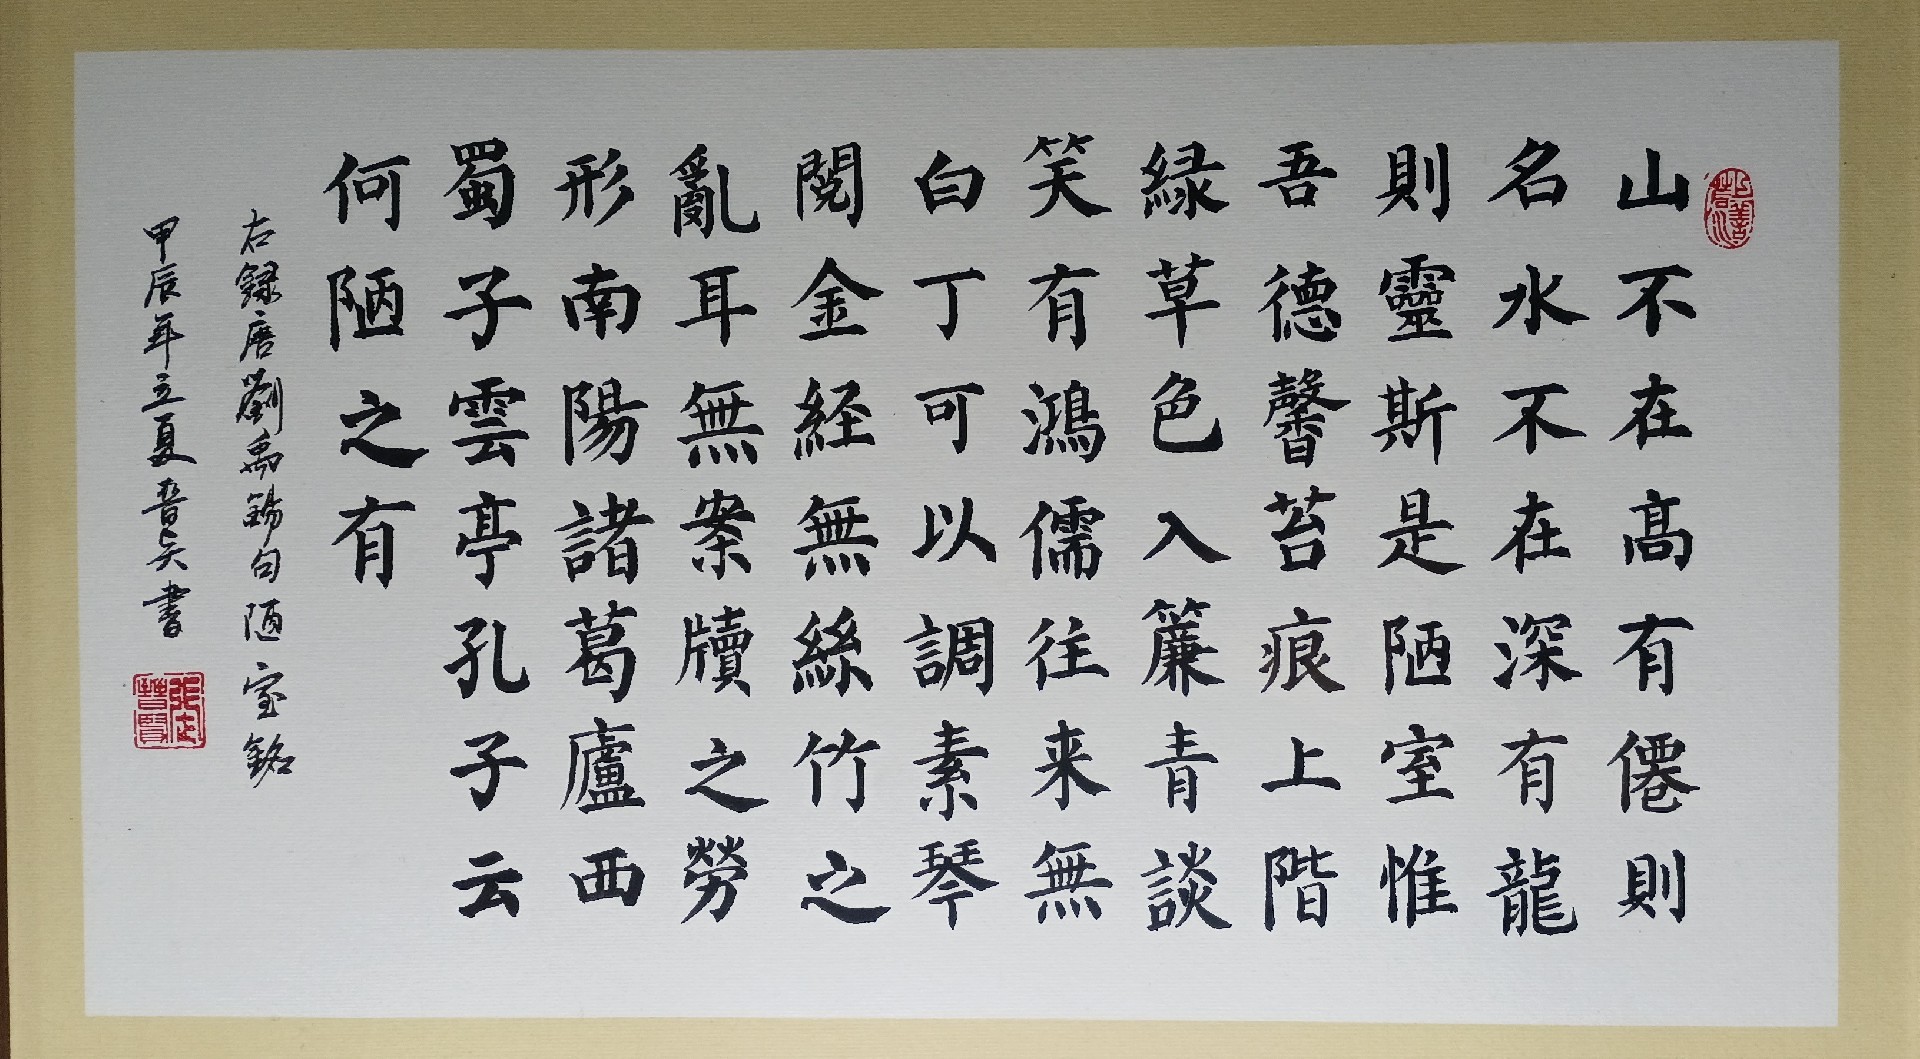 山不在高有僊則
名水不在深有龍
則靈斯是陋室惟
吾德馨苔痕上階
緑草色入簾青談
笑有鴻儒往来無
白丁可以調素琴
閱金経無絲竹之
亂耳無案牘之勞
形南陽諸葛廬西
蜀子雲亭孔子云
何陋之有
右録唐劉禹錫句陋室銘
甲辰年立夏晉賢書